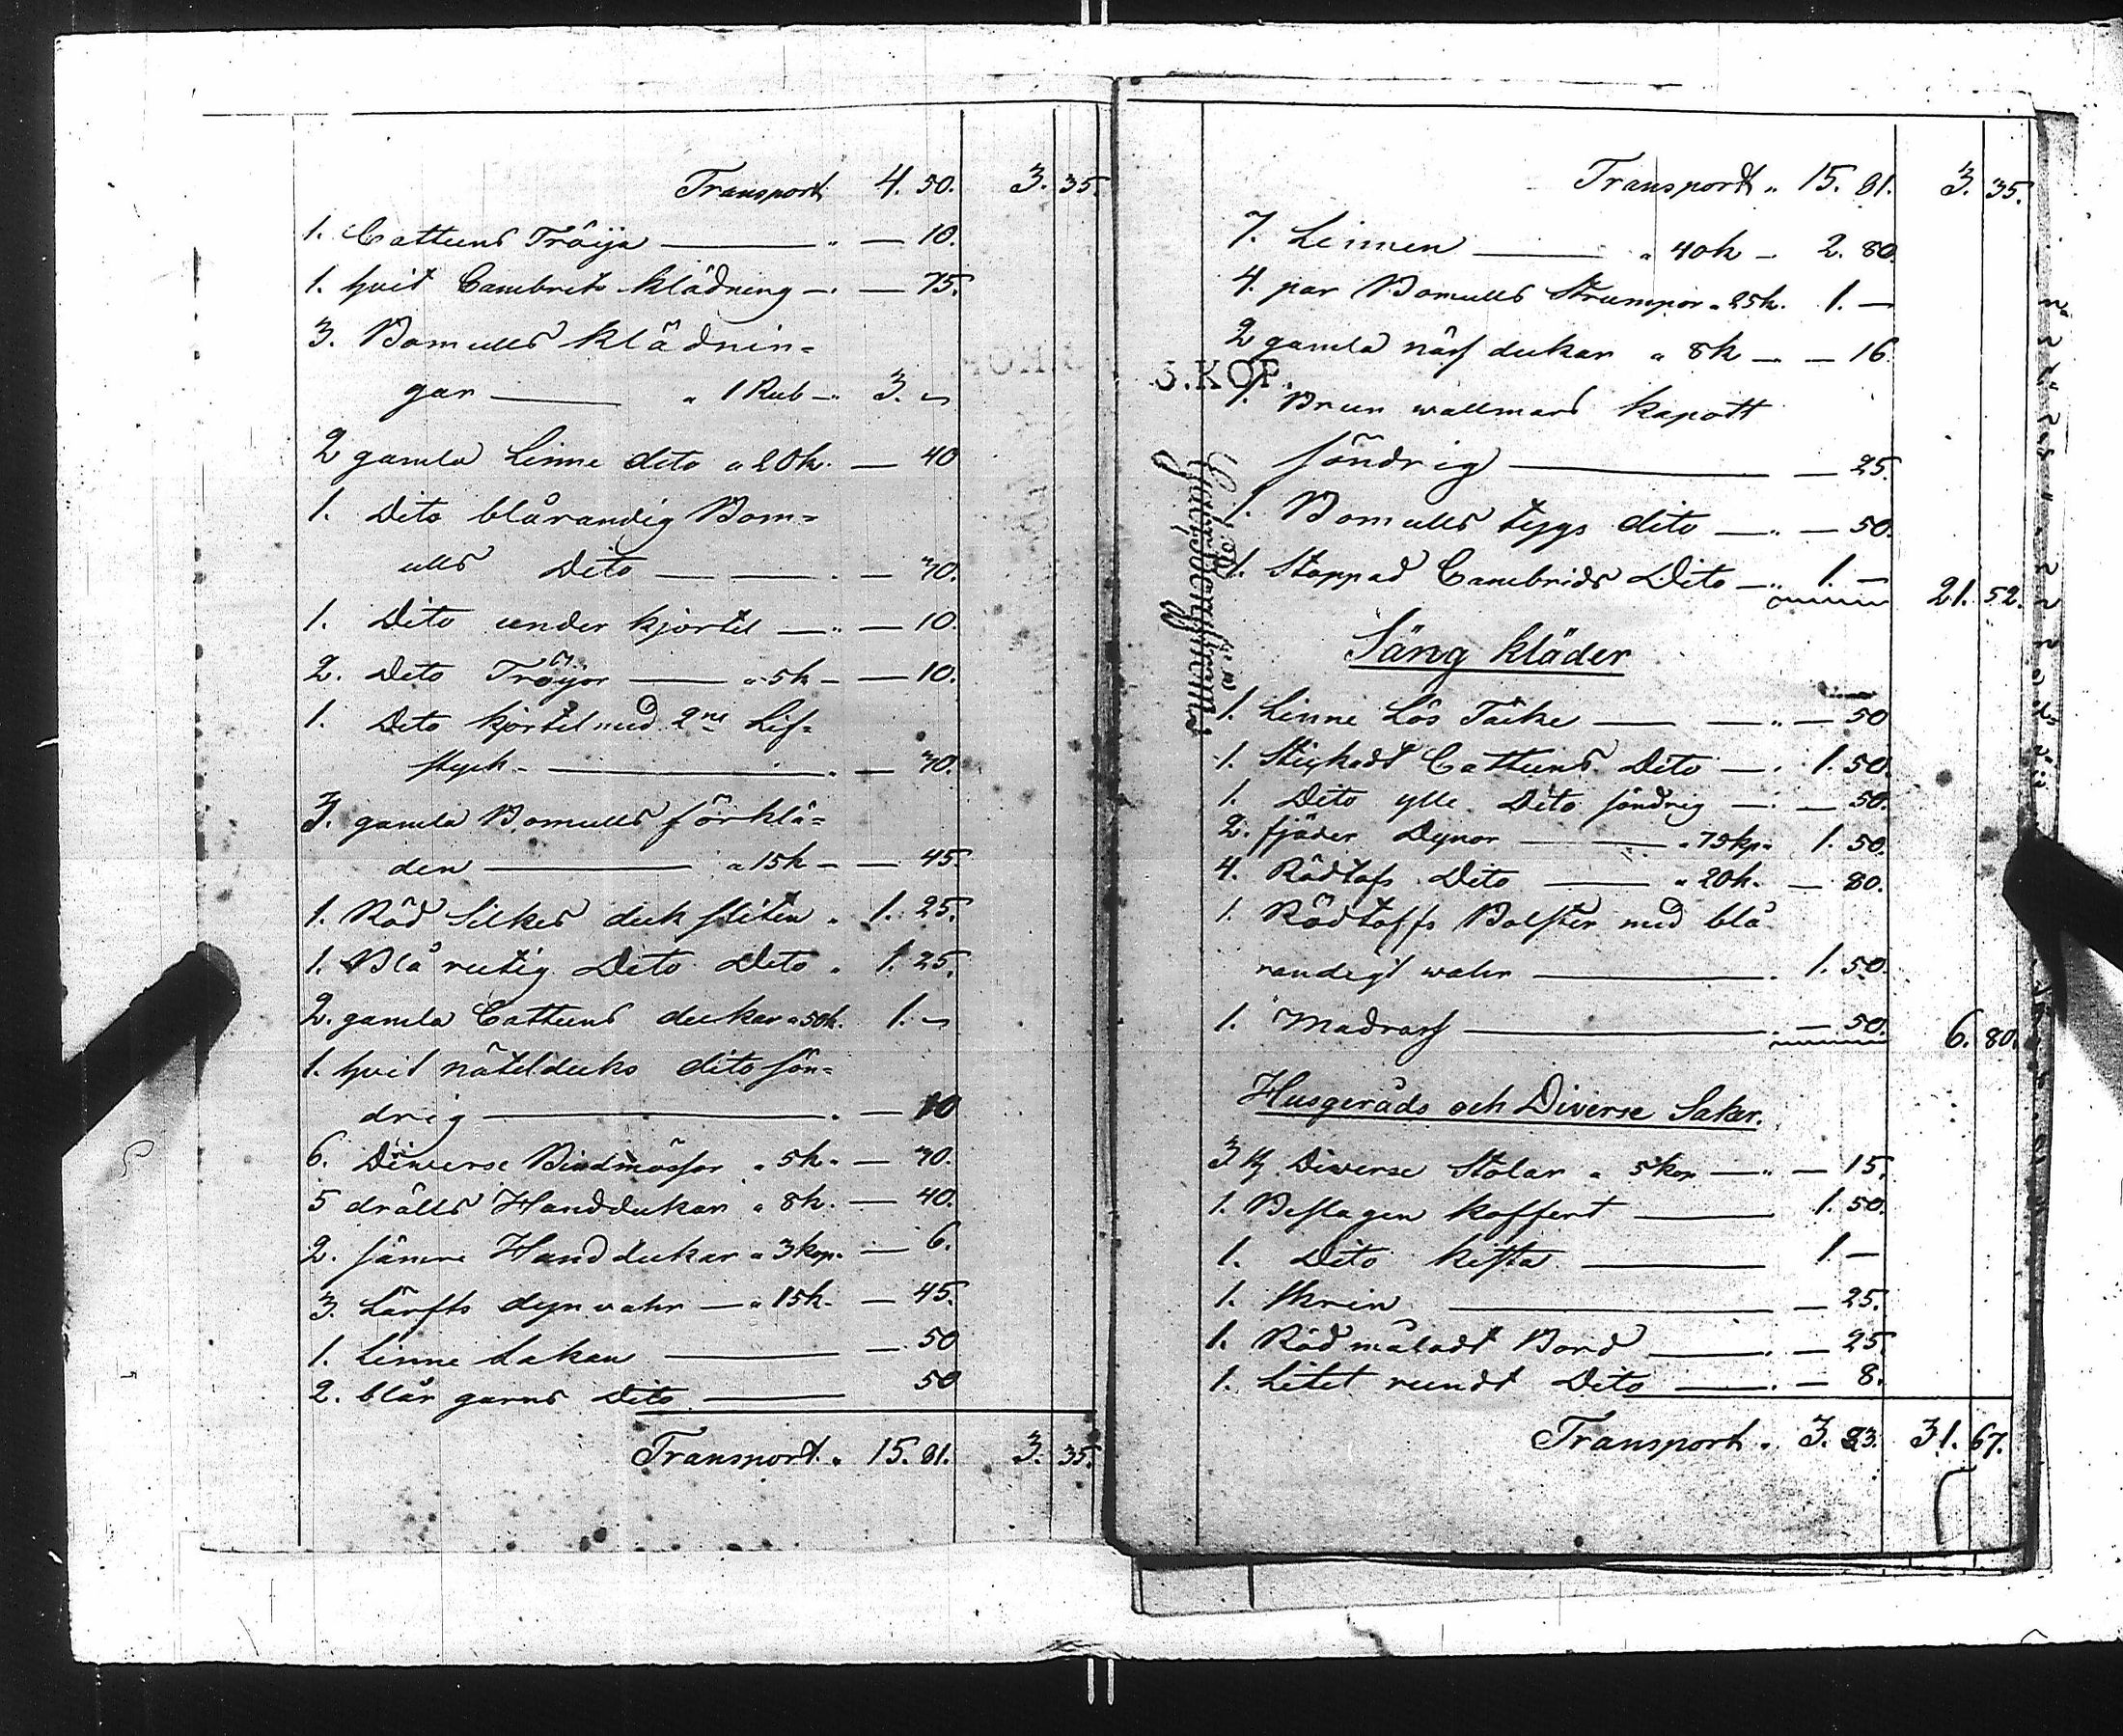 Transport 4. 50. 3. 35.
1. Cattuns Tröija — 10.
1. hvit Cambrits klädning — 75.
3. Bomulls klädnin=
gar " 1 Rub — 3. —
2 gamla Linne dito a 20 k. — 40
1. Dito blårandig Bom=
ulls Dito — 70.
1. Dito under kjortel — 10.
2. Dito Tröyor a 5k — 10.
1. Dito kjortel med 2ne Lif=
stych — 70.
3. gamla Bomulls förklä=
den a 15k — 45
1. Röd Silkes duk sliten . 1. 25.
1. Blå rutig Dito Dito . 1. 25.
2. gamla Cattuns dukar a 50k. 1. —
1. hvit nåtelduks dito sön=
drig — 10
6. Diverse Bindmössor a 5k. — 30.
5 drälls Handdukar a 8k. — 40.
2. sämre Handdukar a 3 kop. — 6.
3. Lärfts dynwahr — a 15k. — 45.
1. Linne Lakan — 50
2. blår garns Dito 50
Transport. 15. 81. 3. 35.
Transport. 15. 81. 3. 35.
7. Linnen a 40k — 2. 80.
4. par Bomulls Strumpor a 25k. 1. —
2 gamla näsdukar a 8k — 16.
3.KOP.
1. Brun wallmars kapott
söndrig — 25.
1. Bomulls tygs dito — 50.
1. Stoppad Cambrids Dito — 1. — 21. 52.
Säng kläder
1. Linne Lös Täcke — 50
1. Stickadt Cattuns Dito — 1. 50.
1. Dito ylle Dito söndrig — 50.
2. fjäder Dynor a 75kp. 1. 50.
4. Rödtafs Dito a 20k. — 80.
1. Rödtaffs Bolster med blå
randigt wahr 1. 50.
1. Madrass — 50. 6. 80.
Husgeråds och Diverse Saker.
3 st Diverse Stolar a 5 kop — 15.
1. Beslagen koffert 1. 50.
1. Dito kista 1 —
1. Skrin — 25.
1. Röd måladt Bord — 25.
1. Litet rundt Dito — 8.
Transport. 3. 23. 31. 67.